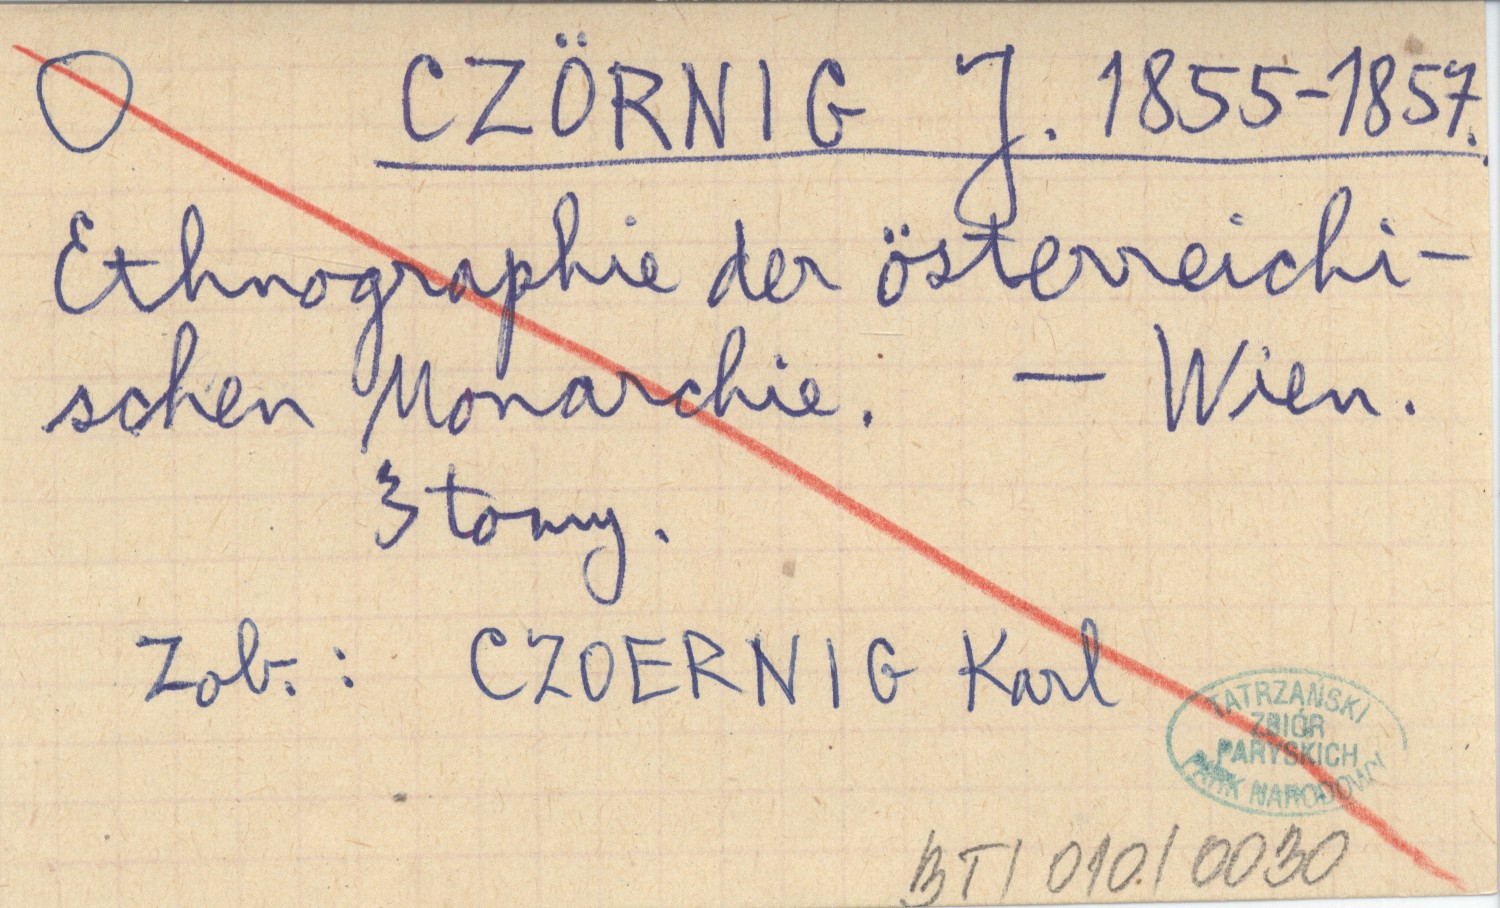 CZÖRNIG J. 1855-1857.
Ethnographie der österreichi-
schen Monarchie. — Wien.
3 tomy.
Zob.: CZOERNIG Karl
TATRZAŃSKI
ZBIÓR
PARYSKICH
PARK NARODOWY
BT/010/0030